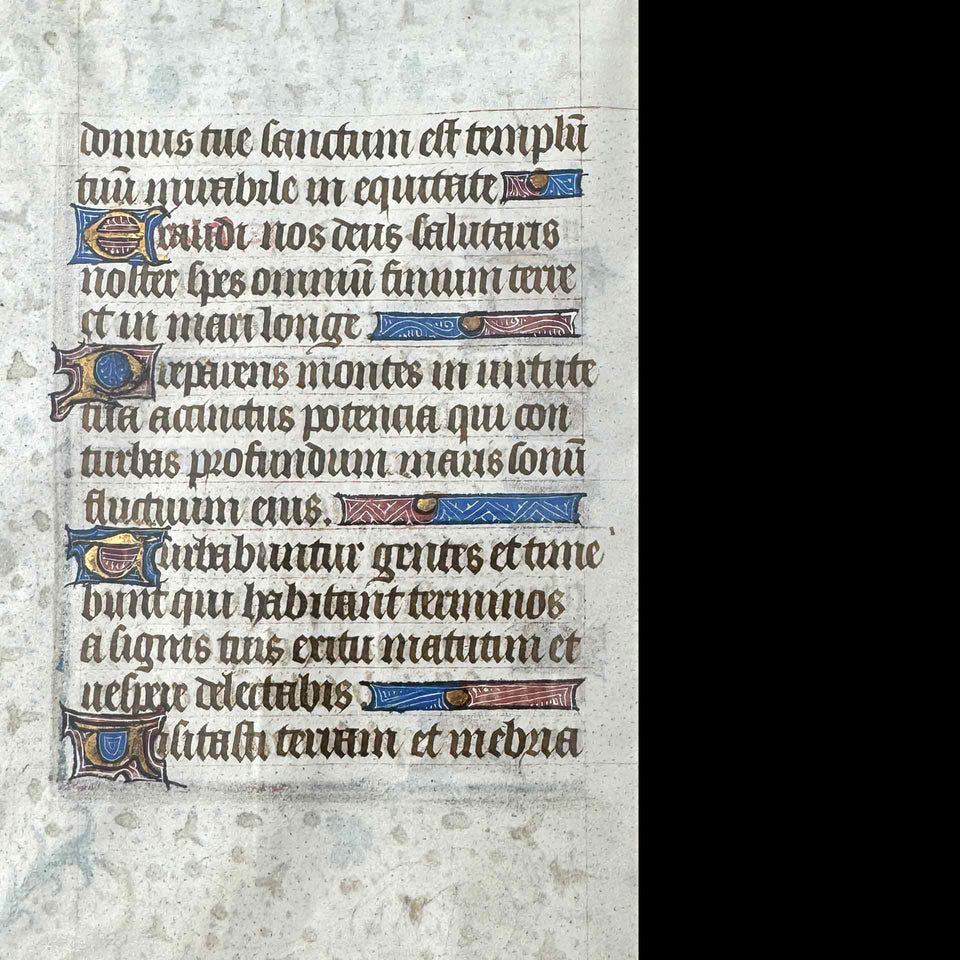 domus tue sanctum est templū
tuū mirabile in equitate
Exaudi nos deus salutaris
noster spes omniū finium terre
et in mari longe
Preparens montes in uirtute
tua accinctus potencia qui con
turbas profundum maris sonū
fluctuum eius.
Turbabuntur gentes et time
bunt qui habitant terminos
a signis tuis exitu matutini et
uespere delectabis
Uisitasti terram et inebria